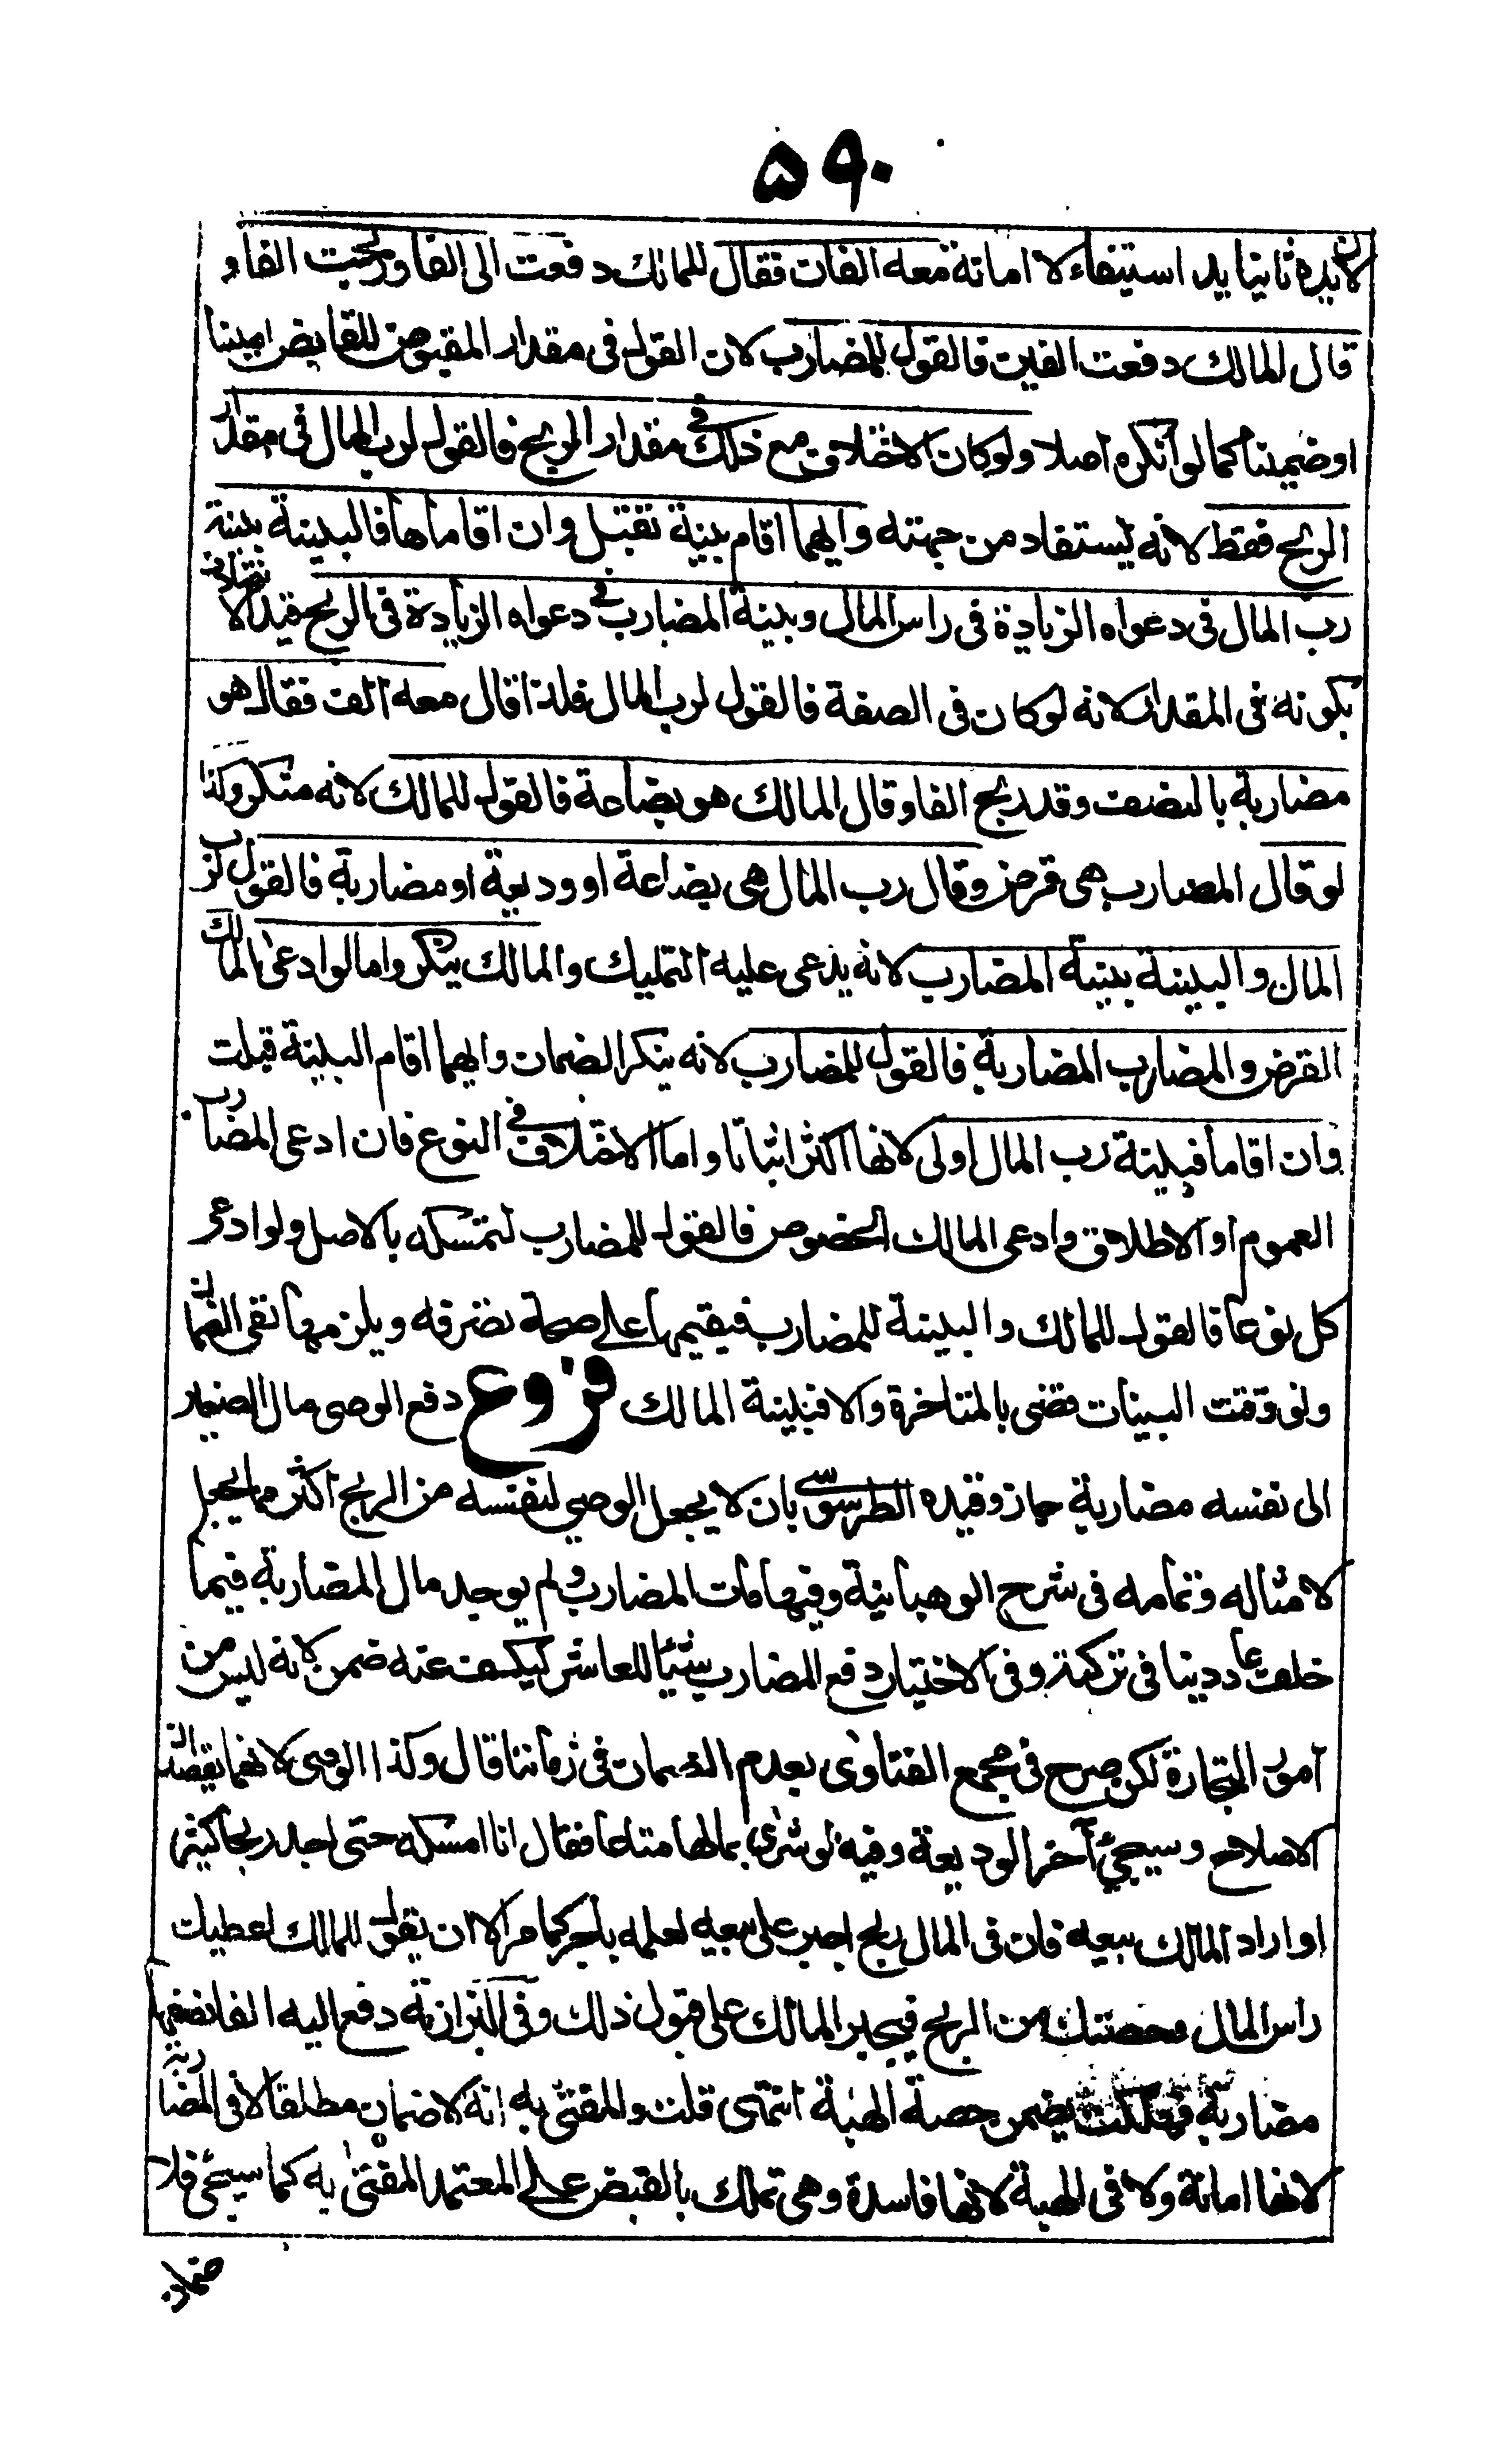 ۵۹۰
لان يده ثانيا يد استيفاء لا امانة معه الفان فقال للمالك دفعت الى الفا وربحت الفا و
قال المالك دفعت الفين فالقول للمضارب لان القول فى مقدار المقبوض للقابض امينا
او ضمينا كما لو انكره اصلا ولو كان الاختلاف مع ذلك فى مقدار الربح فالقول لرب المال فى مقدار
الربح فقط لانه يستفاد من جهته وايهما اقام بينة تقبل وان اقاماها فالبينة بينة
رب المال فى دعواه الزيادة فى راس المال وبينة المضارب فى دعواه الزيادة فى الربح قيد الاختلاف
بكونه فى المقدار لانه لو كان فى الصفة فالقول لرب المال فلذا قال معه الف فقال هو
مضاربة بالنصف وقد ربح الفا وقال المالك هو بضاعة فالقول للمالك لانه منكر وكذا
لو قال المضارب هى قرض وقال رب المال هى بضاعة او وديعة او مضاربة فالقول لرب
المال والبينة بينة المضارب لانه يدعى عليه التمليك والمالك ينكر واما لو ادعى المالك
القرض والمضارب المضاربة فالقول للمضارب لانه ينكر الضمان وايهما اقام البينة قبلت
وان اقاما فبينة رب المال اولى لانها اكثر اثباتا واما الاختلاف فى النوع فان ادعى المضارب
العموم او الاطلاق وادعى المالك الخصوص فالقول للمضارب لتمسكه بالاصل ولو ادعى
كل نوعا فالقول للمالك والبينة للمضارب فيقيمها على صحة تصرفه ويلزمها نفى الضمان
ولو وقتت البينات قضى بالمتاخرة والا فبينة المالك فروع دفع الوصى مال الصغير
الى نفسه مضاربة جاز وقيده الطرسوسى بان لا يجعل الوصي لنفسه من الربح اكثر مما يجعل
لامثاله وتمامه فى شرح الوهبانية وفيها مات المضارب ولم يوجد مال المضاربة فيما
خلف عاد دينا فى تركته وفى الاختيار دفع المضارب شيئا للعاشر ليكف عنه ضمن لانه ليس من
امور التجارة لكن صرح فى مجمع الفتاوى بعدم الضمان فى زماننا قال وكذا الوصى لانهما يقصدان
الاصلاح وسيجئ آخر الوديعة وفيه لو شرى بمالها متاعا فقال انا امسكه حتى اجد ربحا كثيرا
او اراد المالك بيعه فان فى المال ربح اجبر على بيعه لعمله باجر كما مر الا ان يقول للمالك اعطيك
راس المال وحصتك من الربح فيجبر المالك على قبول ذلك وفى البزازية دفع اليه الفا نصفها
مضاربة فهلكت يضمن حصة الهبة انتهى قلت والمفتى به انه لا ضمان مطلقا لا فى المضاربة
لانها امانة ولا فى الهبة لانها فاسدة وهى تملك بالقبض على المعتمد المفتى به كما سيجئ فلا
ضمان